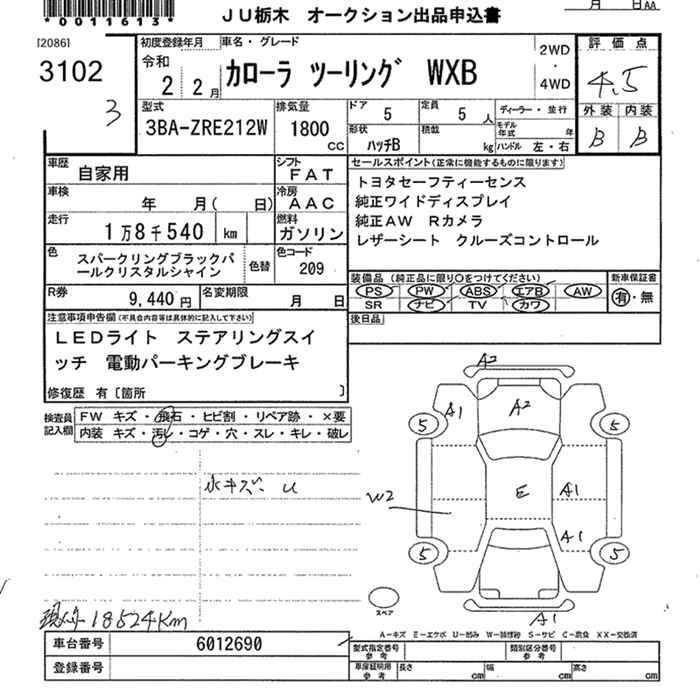 *0011613*
JU栃木 オークション出品申込書
月 日AA
[2086]
3102
3
初度登録年月 車名・グレード
令和
2 2月
カローラ ツーリング WXB
2WD
・
4WD
評価点
4.5
外装 内装
B B
型式
3BA-ZRE212W
排気量
1800
CC
ドア
5
定員
5 人
形状
ハッチB
積載
kg
ディーラー・並行
モデル年式 年
ハンドル 左・右
車歴
自家用
シフト
FAT
車検
年 月( 日)
冷房
AAC
走行
1万8千540 km
燃料
ガソリン
色
スパークリングブラックパールクリスタルシャイン
色替
色コード
209
R券
9,440円
名変期限
月 日
セールスポイント(正常に機能するものに限ります)
トヨタセーフティーセンス
純正ワイドディスプレイ
純正AW Rカメラ
レザーシート クルーズコントロール
装備品(純正品に限り○をつけてください)
PS PW ABS エアB AW
SR ナビ TV カワ
新車保証書
有・無
後日品
注意事項申告欄(不具合内容等は具体的に記入して下さい)
LEDライト ステアリングスイ
ッチ 電動パーキングブレーキ
修復歴 有〔箇所 〕
検査員記入欄
FW キズ・飛石・ヒビ割・リペア跡・×要
内装 キズ・汚レ・コゲ・穴・スレ・キレ・破レ
小キズ U
A2
A1
A2
5
5
W2
E
A1
A1
5
5
スペア
A1
A-キズ E-エクボ U-凹み W-補修跡 S-サビ C-腐食 XX-交換済
現メーター 18524Km
車台番号
6012690
登録番号
型式指定番号
参考
類別区分番号
参考
車庫証明用
参考
長さ cm
幅 cm
高さ cm